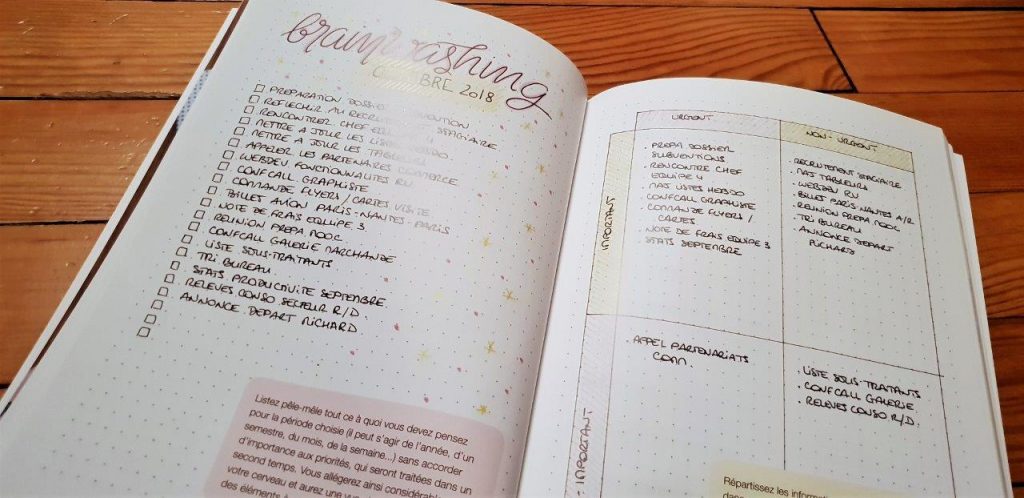 brainwashing
OCTOBRE 2018
PREPARATION DOSSIER SUBVENTION
REFLECHIR AU RECRUTEMENT STAGIAIRE
RENCONTRER CHEF EQUIPE
METTRE A JOUR LES LISTES HEBDO.
METTRE A JOUR LES TABLEURS
APPELER LES PARTENAIRES COMMERCE
WEBDEV FONCTIONNALITES RU
CONFCALL GRAPHISTE
COMMANDE FLYERS / CARTES VISITE
BILLET AVION PARIS-NANTES-PARIS
NOTE DE FRAIS EQUIPE 3
REUNION PREPA MOOC
CONFCALL GALERIE MARCHANDE
LISTE SOUS-TRAITANTS
TRI BUREAU
STATS PRODUCTIVITE SEPTEMBRE
RELEVES CONSO SECTEUR R/D.
ANNONCE DEPART RICHARD
Listez pêle-mêle tout ce à quoi vous devez pensez
pour la période choisie (il peut s'agir de l'année, d'un
semestre, du mois, de la semaine...) sans accorder
d'importance aux priorités, qui seront traitées dans un
second temps. Vous allégerez ainsi considérablement
votre cerveau et aurez une vue
des éléments à
URGENT
NON-URGENT
IMPORTANT
. PREPA DOSSIER
SUBVENTIONS
. RENCONTRE CHEF
EQUIPE 4
. MAJ LISTES HEBDO
. CONFCALL GRAPHISTE
. COMMANDE FLYERS /
CARTES
. NOTE DE FRAIS EQUIPE 3
. STATS SEPTEMBRE
. RECRUTEMENT STAGIAIRE
. MAJ TABLEURS
. WEBDEV RU
. BILLET PARIS-NANTES A/R
. REUNION PREPA MOOC
. TRI BUREAU
. ANNONCE DEPART
RICHARD
- IMPORTANT
. APPEL PARTENARIATS
COMM.
. LISTE SOUS-TRAITANTS
. CONFCALL GALERIE
. RELEVES CONSO R/D.
Répartissez les
dans